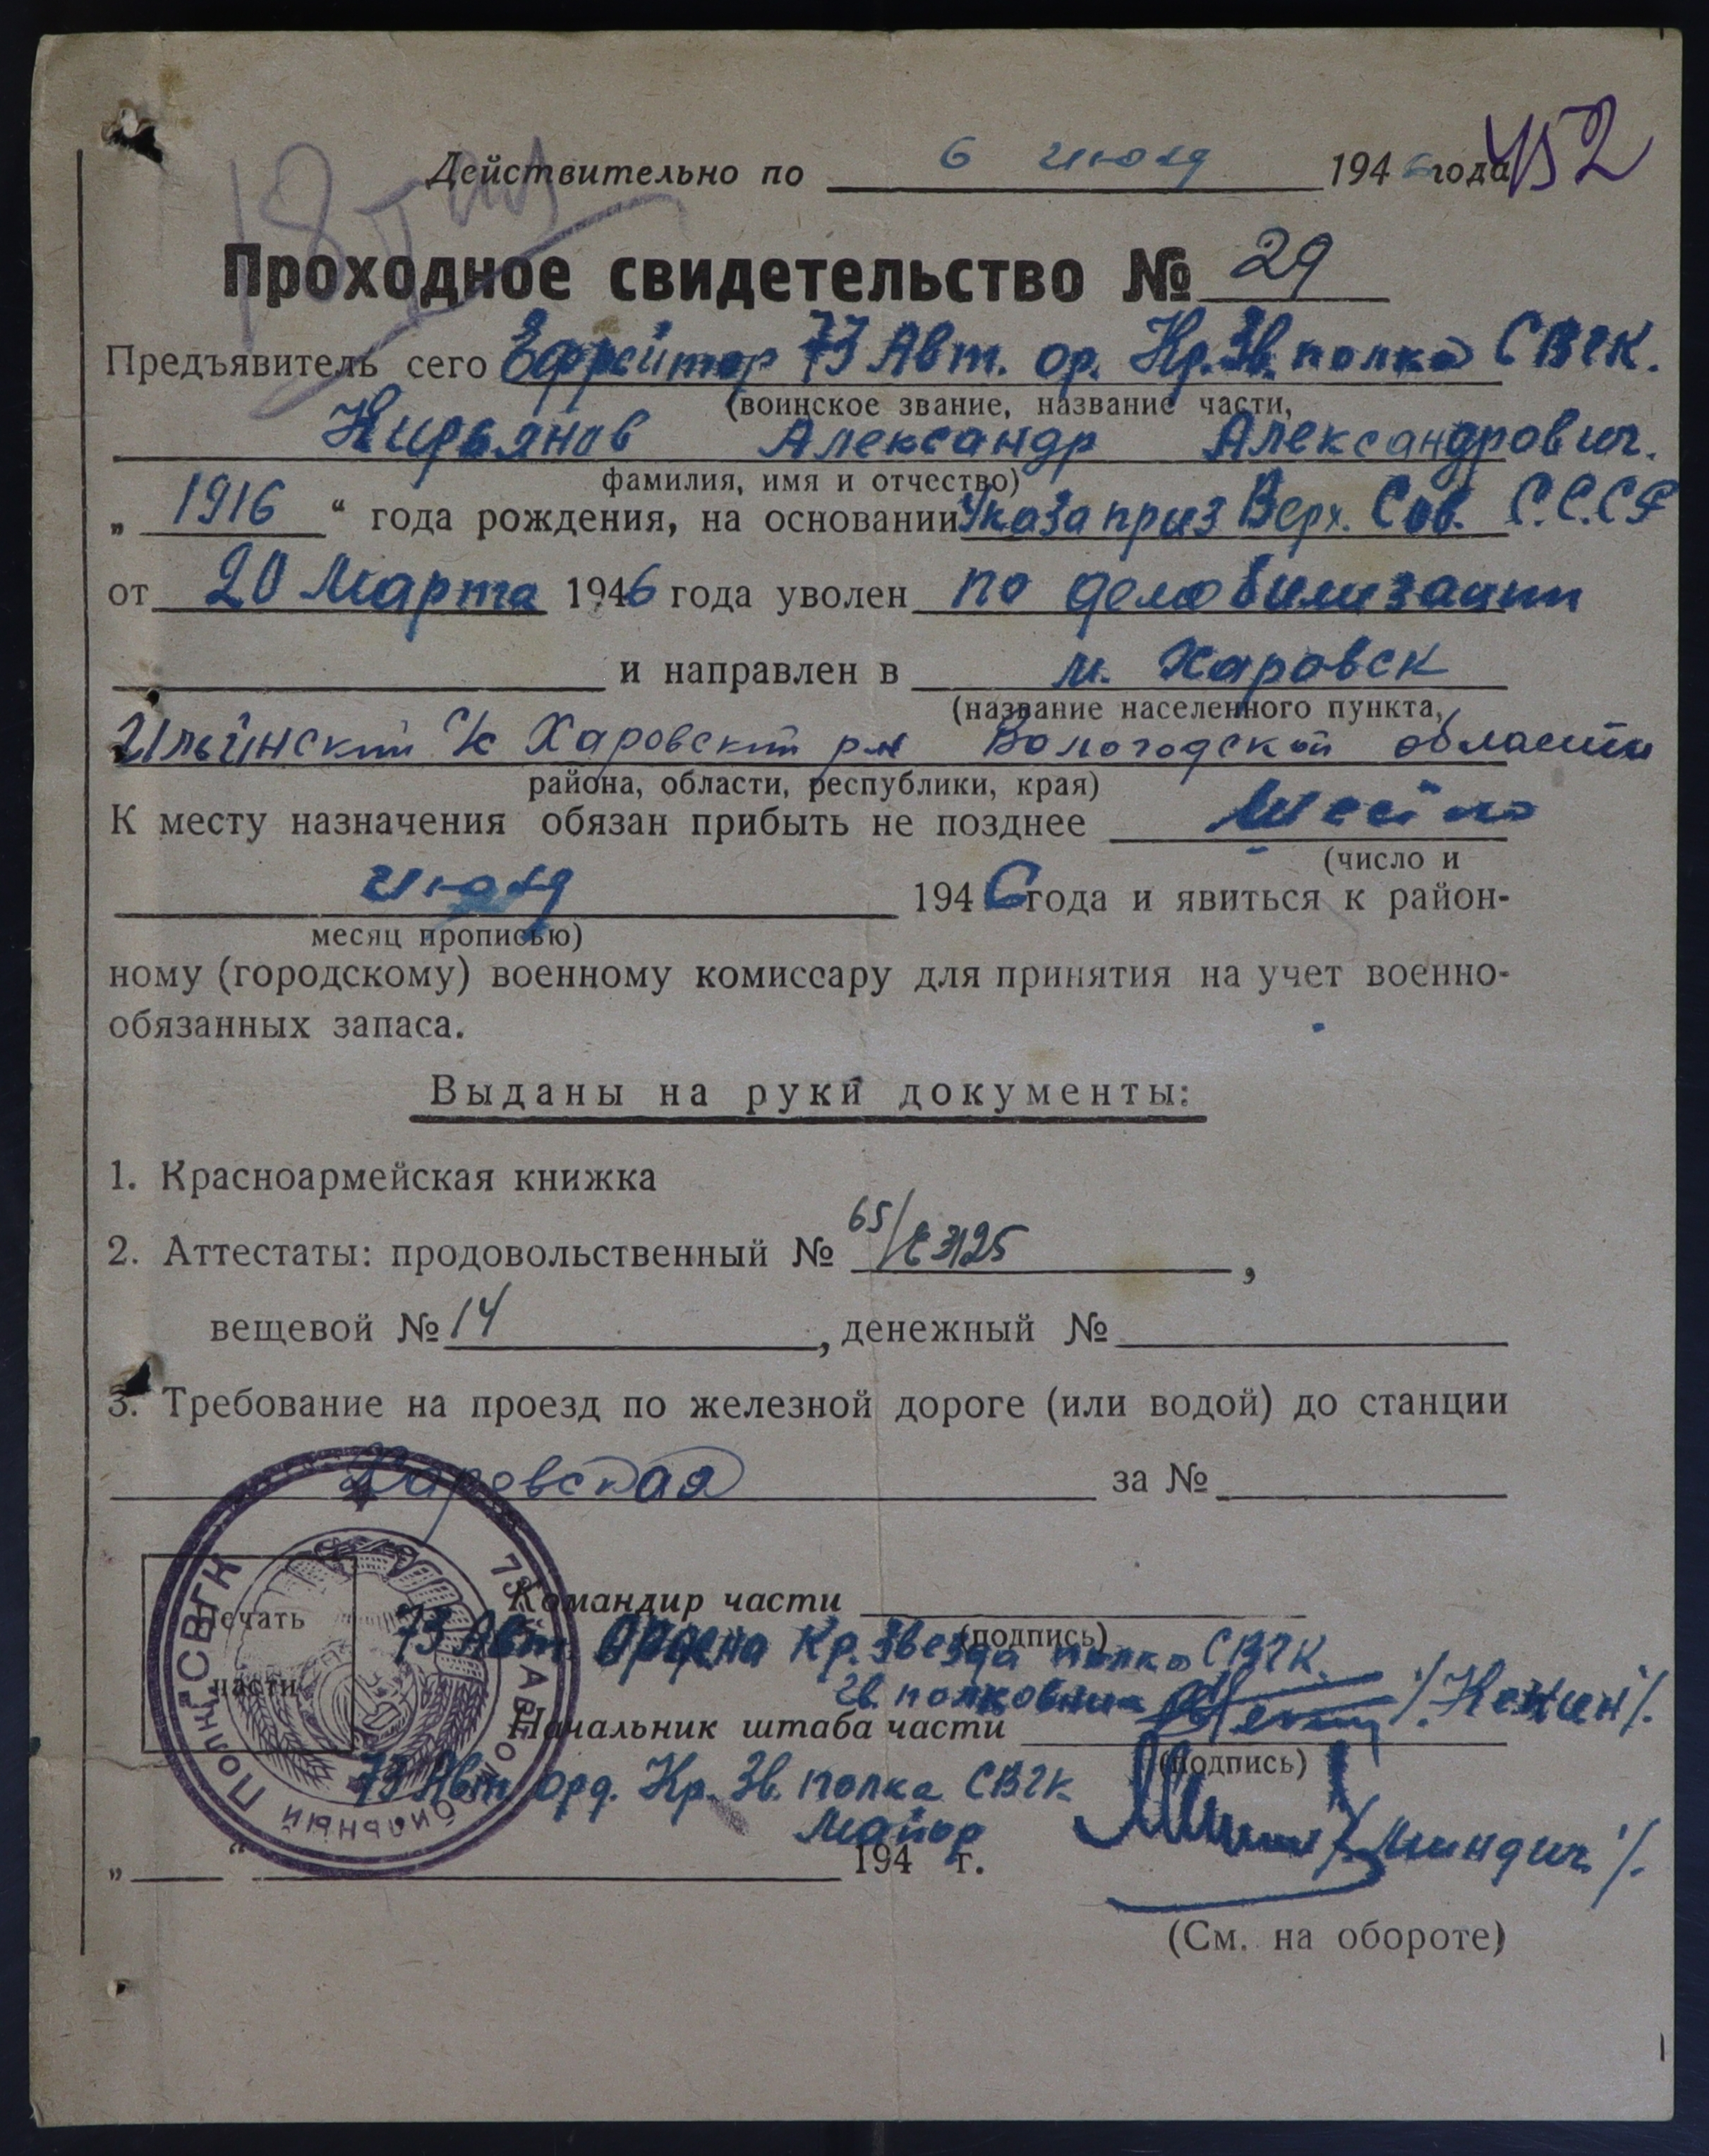 Действительно по 6 июля 1946 года
452
Проходное свидетельство № 29
Предъявитель сего Ефрейтор 73 Авт. ор. Кр. Зв. полка СВГК.
(воинское звание, название части,
Кирьянов Александр Александрович.
фамилия, имя и отчество)
„ 1916 “ года рождения, на основании Указа през Верх. Сов. С.С.С.Р
от 20 Марта 1946 года уволен по демобилизации
и направлен в м. Харовск
(название населенного пункта,
Ильинский с/с Харовский р-н Вологодской области
района, области, республики, края)
К месту назначения обязан прибыть не позднее
(число и
июля 1946 года и явиться к район-
месяц прописью)
ному (городскому) военному комиссару для принятия на учет военно-
обязанных запаса.
Выданы на руки документы:
1. Красноармейская книжка
2. Аттестаты: продовольственный № 65/ 3125,
вещевой № 14, денежный №
3. Требование на проезд по железной дороге (или водой) до станции
Харовская за №
Печать части
73 Автомобильный Полк СВГК
Командир части
(подпись)
73 Авт. Ордена Кр. Звезда полка СВГК.
Гв. полковник /Кожин/.
Начальник штаба части
(подпись)
73 Авт. Орд. Кр. Зв. полка СВГК
Майор /Миндич/.
„ “ 194 г.
(См. на обороте)